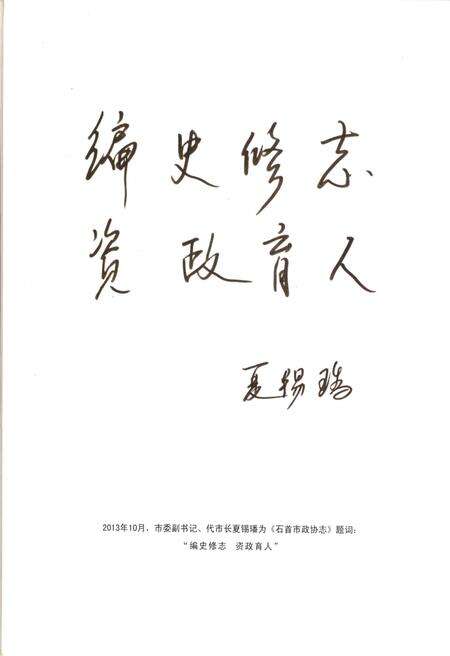 编史修志
资政育人
夏锡璠
2013年10月，市委副书记、代市长夏锡璠为《石首市政协志》题词：
“编史修志　资政育人”